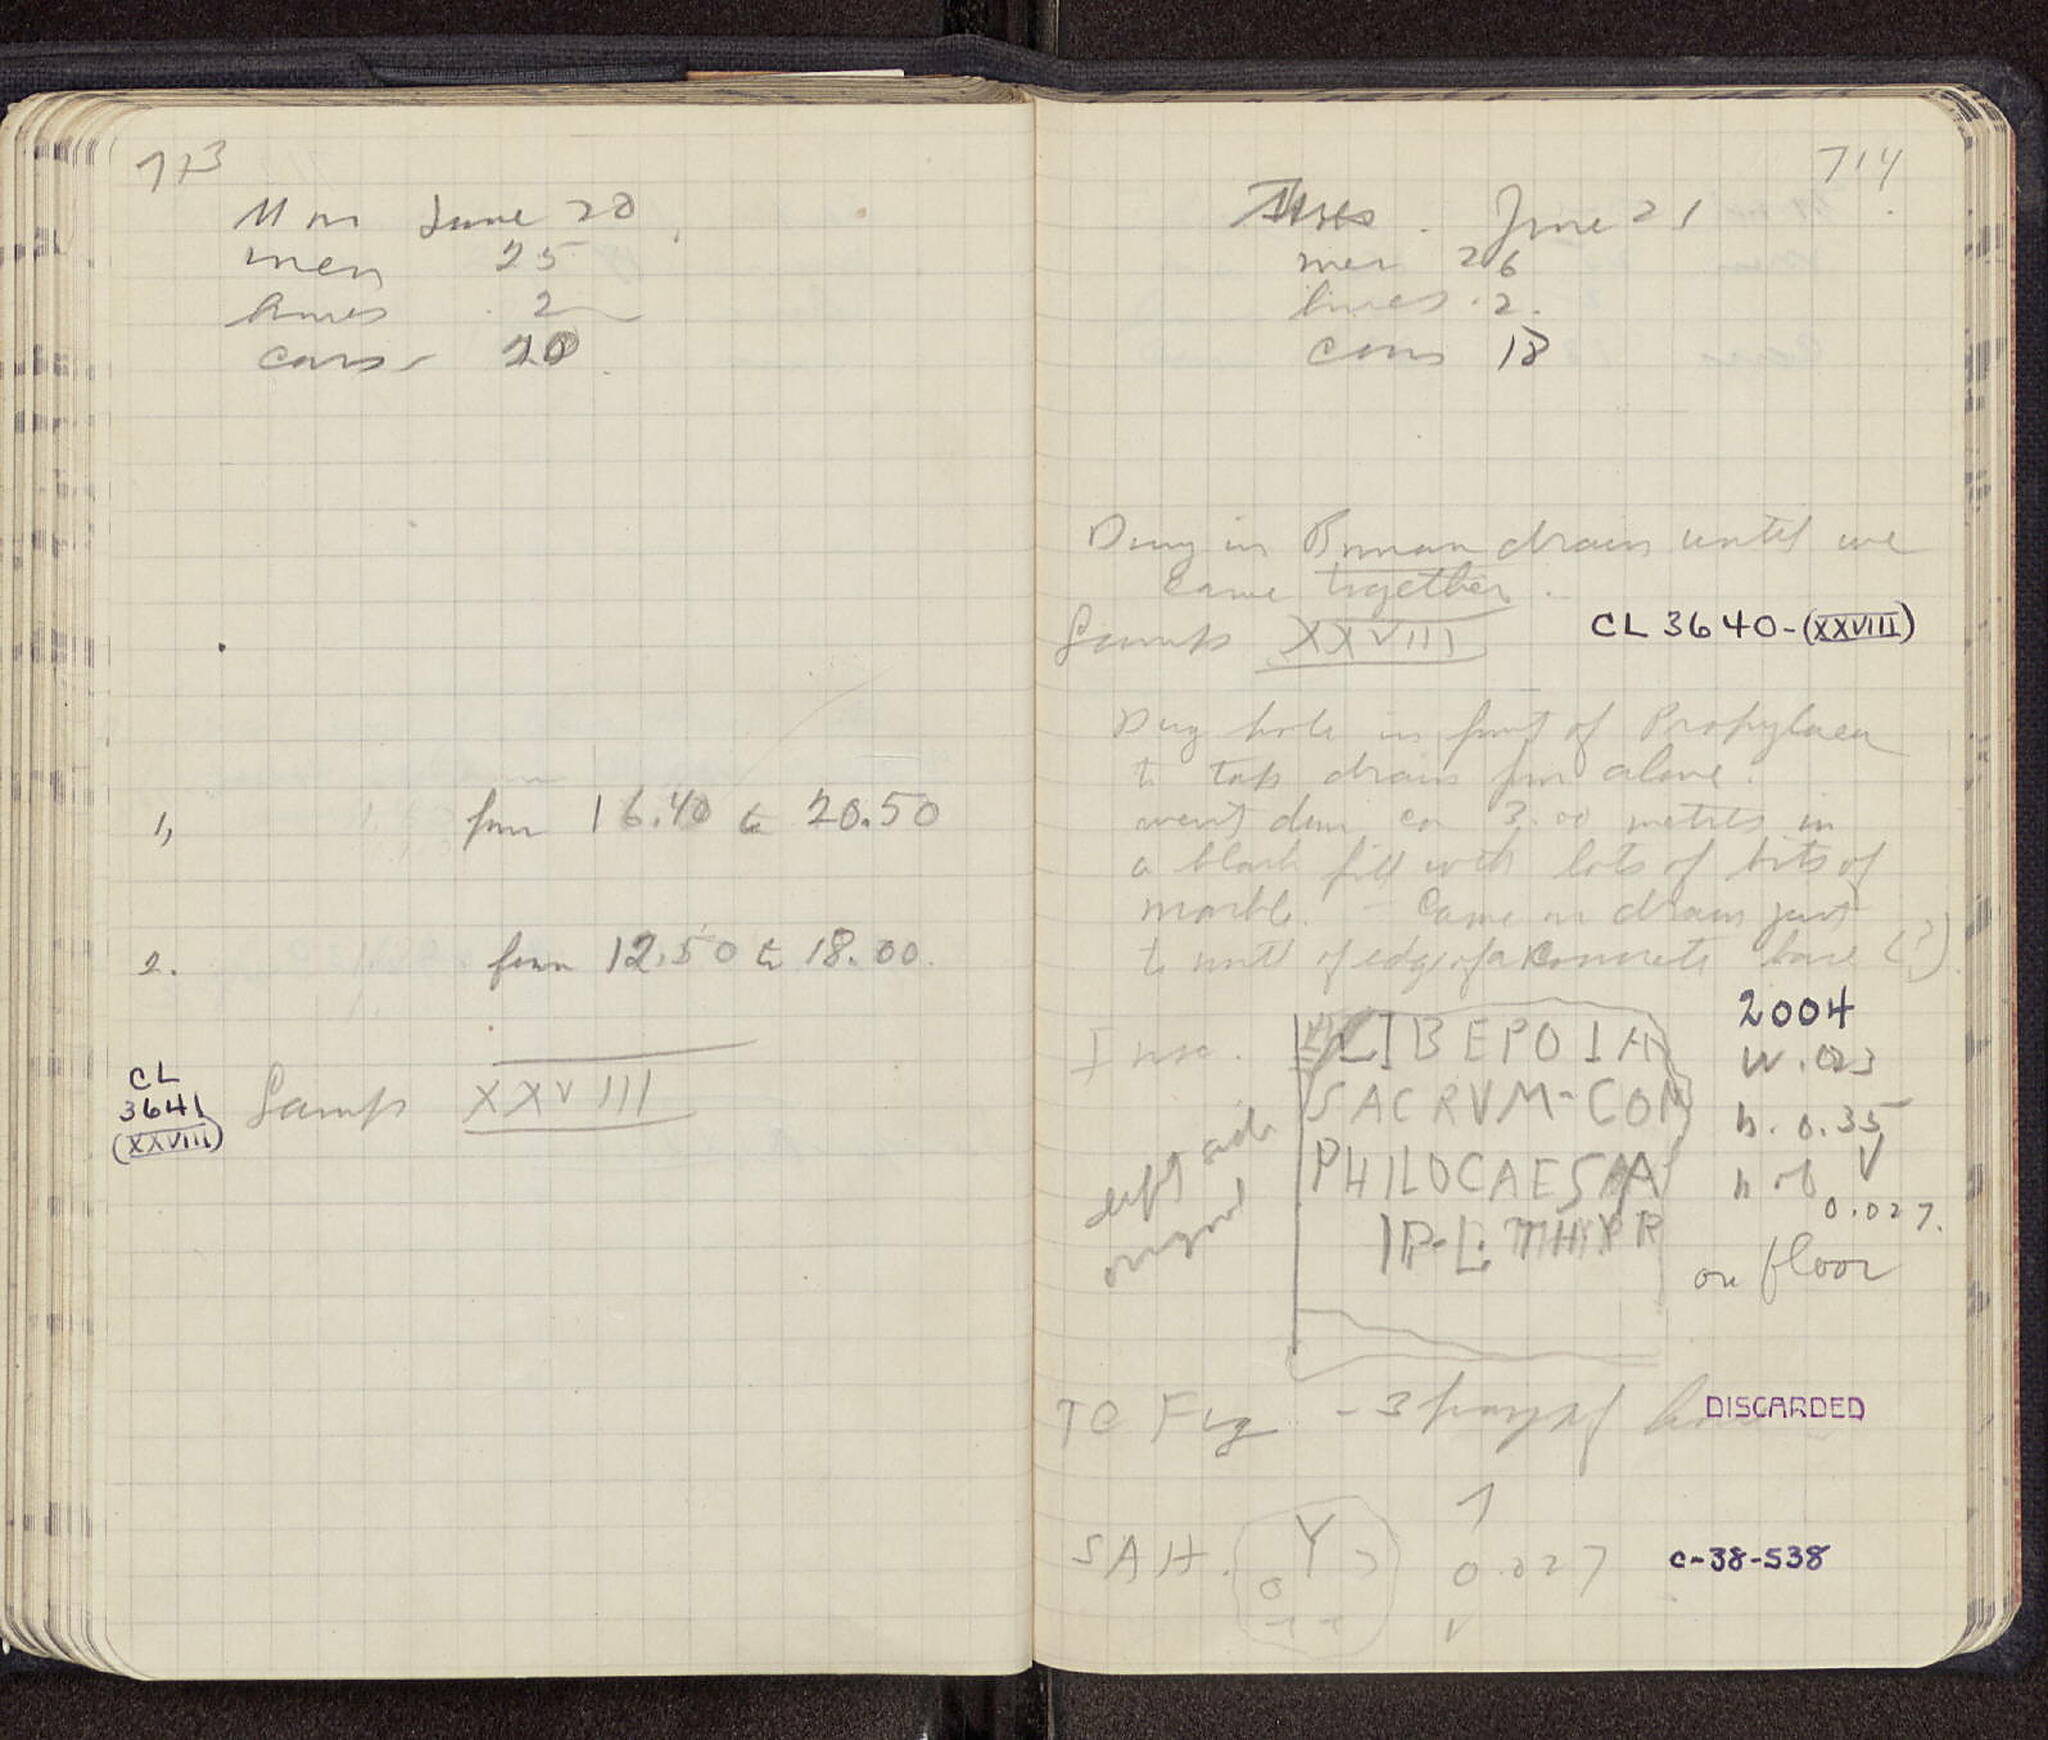 713
Mon June 20
men 25
2
cars 20
1, from 16.40 to 20.50
2. from 12.50 to 18.00.
CL
3641
(XXVIII)
Lamp XXVIII
714
Tues. June 21
men 26
2.
cars 18
Dug in Roman drain until we
came together.
Lamp XXVIII
CL 3640-(XXVIII)
Dug hole in front of Propylaea
to tap drain from above.
went down ca 3.00 metres in
a black fill with lots of bits of
marble. - Came on drain just
to north of edge of a concrete base (?)
Insc.
left side
original
LIBEPOIA
SACRVM-CON
PHILOCAESA
IP-L.
2004
W. 023
h. 0.35
h of
0.027.
on floor
TC Fig - 3
DISCARDED
SAH. Y
0.027
C-38-538